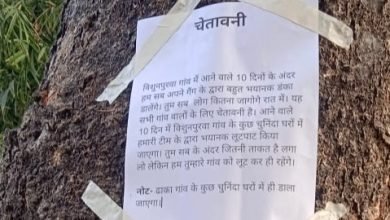 चेतावनी
विशुनपुरवा गांव में आने वाले 10 दिनों के अंदर
हम सब अपने गैंग के द्वारा बहुत भयानक डंका
डालेंगे। तुम सब लोग कितना जागोगे रात में। यह
सभी गांव वालों के लिए चेतावनी है। आने वाले
10 दिन में विशुनपुरवा गांव के कुछ चुनिंदा घरों में
हमारी टीम के द्वारा भयानक लूटपाट किया
जाएगा। तुम सब के अंदर जितनी ताकत है लगा
लो लेकिन हम तुम्हारे गांव को लूट कर ही रहेंगे।
नोट- ढाका गांव के कुछ चुनिंदा घरों में ही डाला
जाएगा।